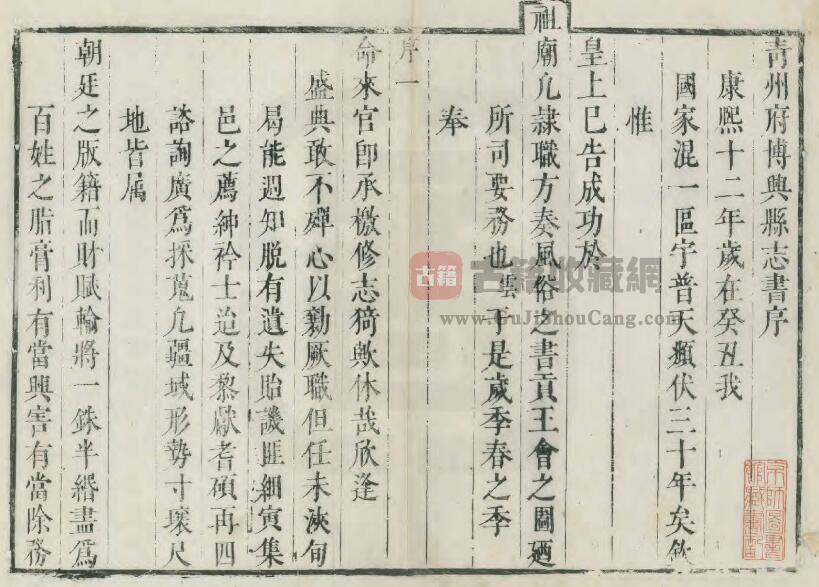 青州府博興縣志書序
康熙十二年歲在癸丑我
國家混一區宇普天頫伏三十年矣欽
惟
皇上已告成功於
祖廟凢隷職方奏風俗之書貢王會之圖廼
所司要務也雲于是歲季春之季
奉
序一
命來官卽承檄修志猗歟休哉欣逢
盛典敢不殫心以勷厥職但任未浹旬
曷能週知脱有遺失貽譏匪細寅集
邑之薦紳衿士迨及黎獻耆碩再四
諮詢廣爲採蒐凢疆域形勢寸壌尺
地皆屬
朝廷之版籍而財賦輸將一銖半緡盡爲
百姓之脂膏利有當興害有當除務
古籍
古籍收藏網
www.GuJiShouCang.com
京師圖書
館藏書記